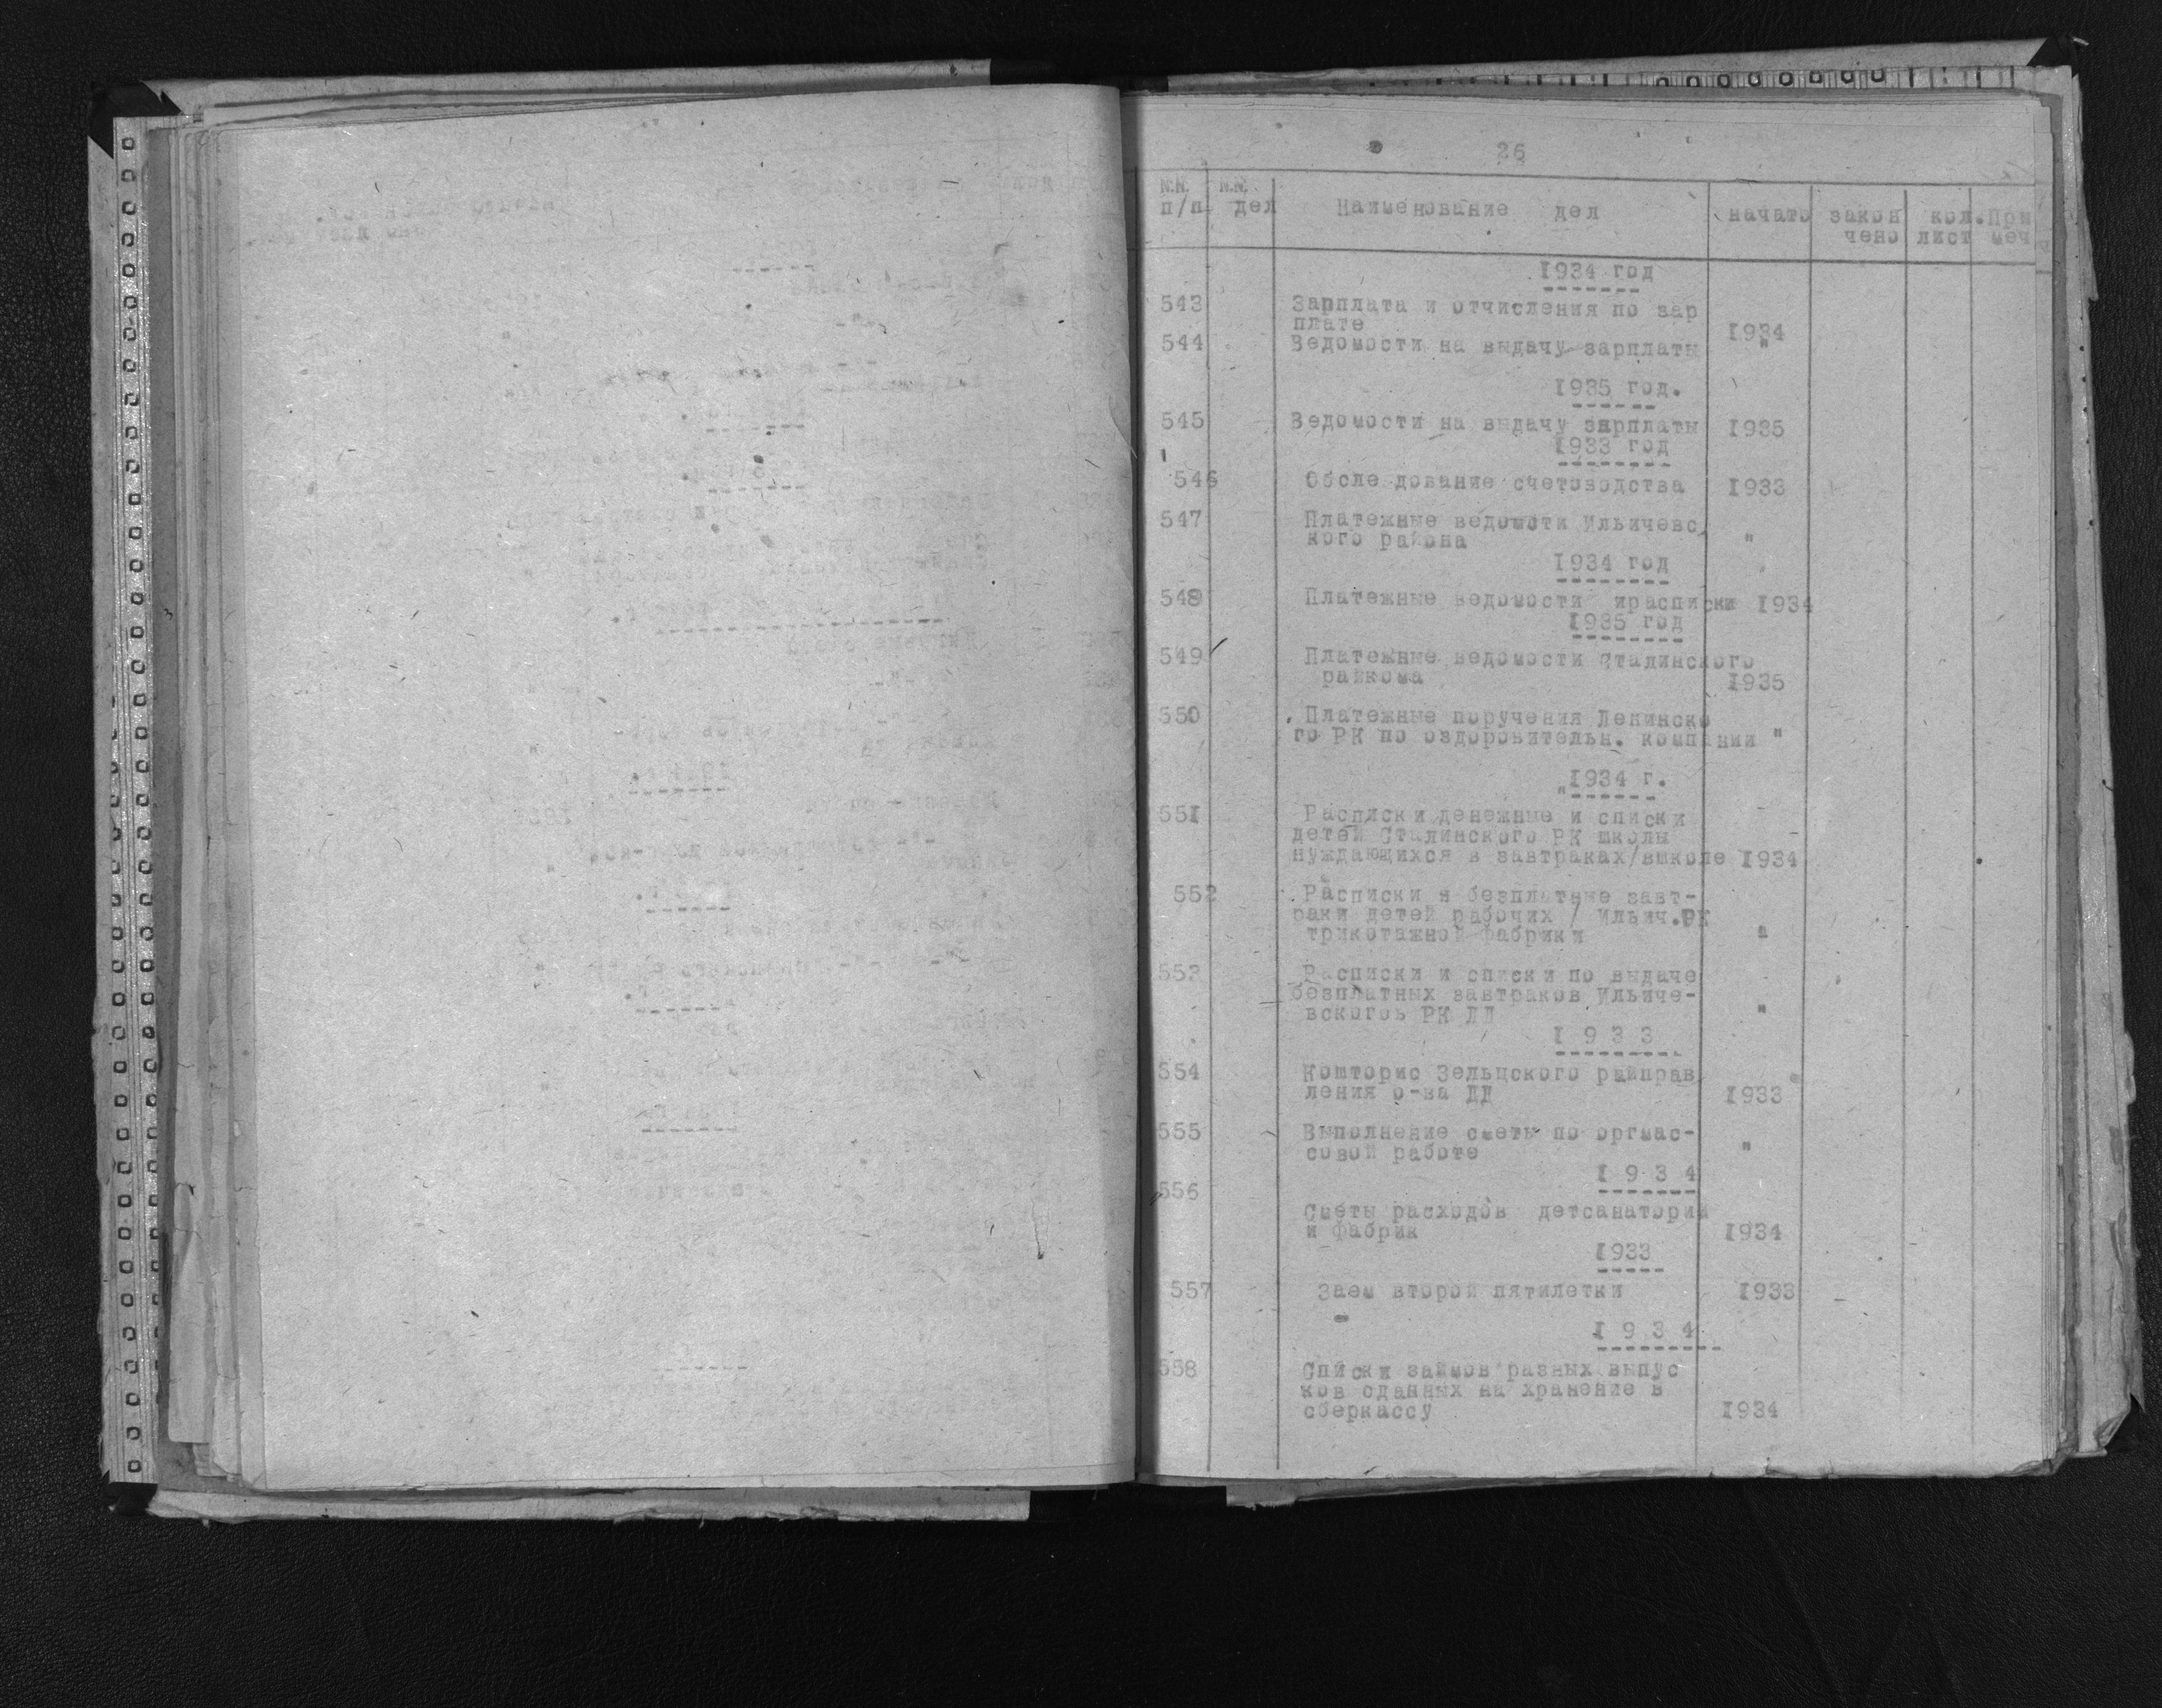 26
N.N. N.N.
п/п дел Наименование дел начато закон кол. При
чено лист меч
1934 год
543 Зарплата и отчисления по зар
плате 1934
544 Ведомости на выдачу зарплаты "
1935 год.
545 Ведомости на выдачу зарплаты 1935
1933 год
546 Обсле дование счетоводства 1933
547 Платежные ведомоти Ильичевс
кого района "
1934 год
548 Платежные ведомости ирасписки 1934
1935 год
549 Платежные ведомости Сталинского
райкома 1935
550 Платежные поручения Ленинско
го РК по оздоровительн. компании "
1934 г.
551 Расписки денежные и списки
детей Сталинского РК школы
нуждающихся в завтраках/вшколе 1934
552 Расписки в безплатные завт-
раки детей рабочих / Ильич.РК
трикотажной фабрики "
553 Расписки и списки по выдаче
безплатных завтраков Ильиче-
вскогоь РК ДД "
1 9 3 3
554 Кошторис Зельцского райправ
ления о-ва ДД 1933
555 Выполнение сметы по оргмас-
совой работе "
1 9 3 4
556
Сметы расходов детсанатории
и фабрик 1934
1933
557 Заем второй пятилетки 1933
1 9 3 4
558 Списки займов разных выпус
ков сданных на хранение в
сберкассу 1934